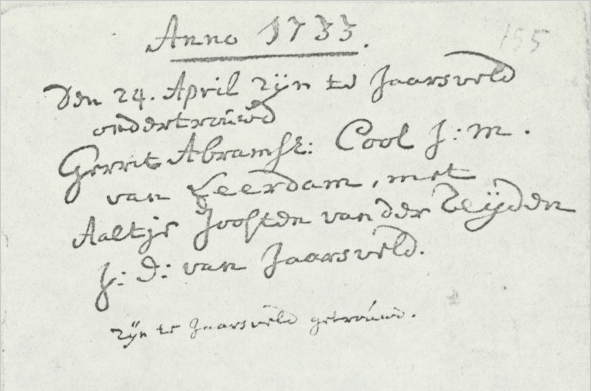 155
Anno 1733.
Den 24. April zijn te Jaarsveld
ondertrouwd
Gerrit Abramsz: Cool J: m.
van Leerdam, met
Aaltje Joosten van der Heijden
J: D: van Jaarsveld.
zijn te Jaarsveld getrouwd.